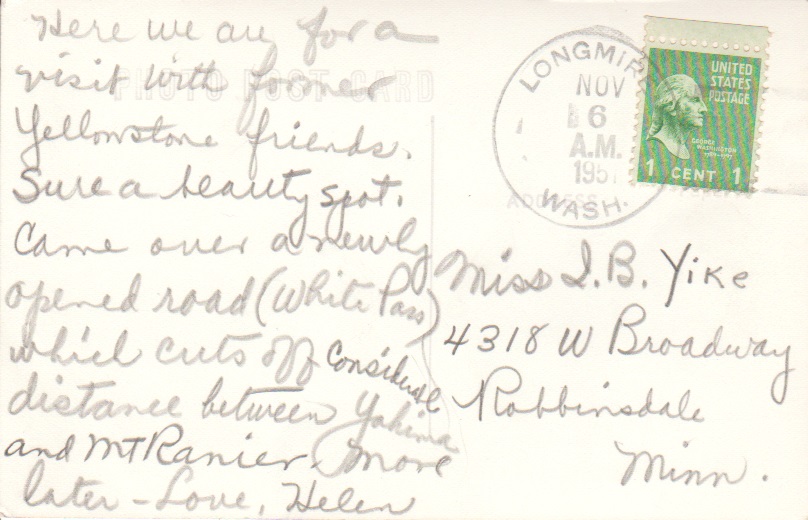 Here we are for a
visit with former
Yellowstone friends.
Sure a beauty spot.
Came over a newly
opened road (White Pass)
which cuts off considerable
distance between Yakima
and Mt Ranier. More
later - Love, Helen
PHOTO POST CARD
LONGMIRE
NOV
6
A.M.
195
WASH.
UNITED
STATES
POSTAGE
GEORGE
WASHINGTON
1 CENT 1
ADDRESS
Miss I. B. Yike
4318 W Broadway
Robbinsdale
Minn.